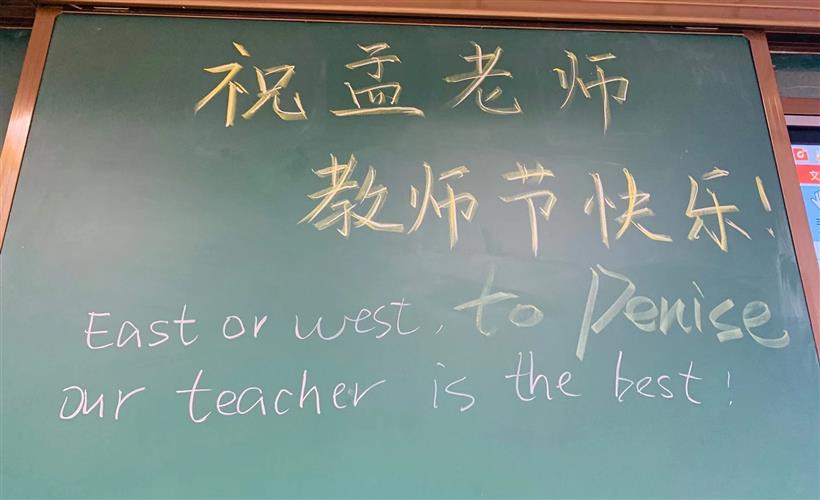 祝孟老师
教师节快乐!
East or west, to Denise
our teacher is the best!
文